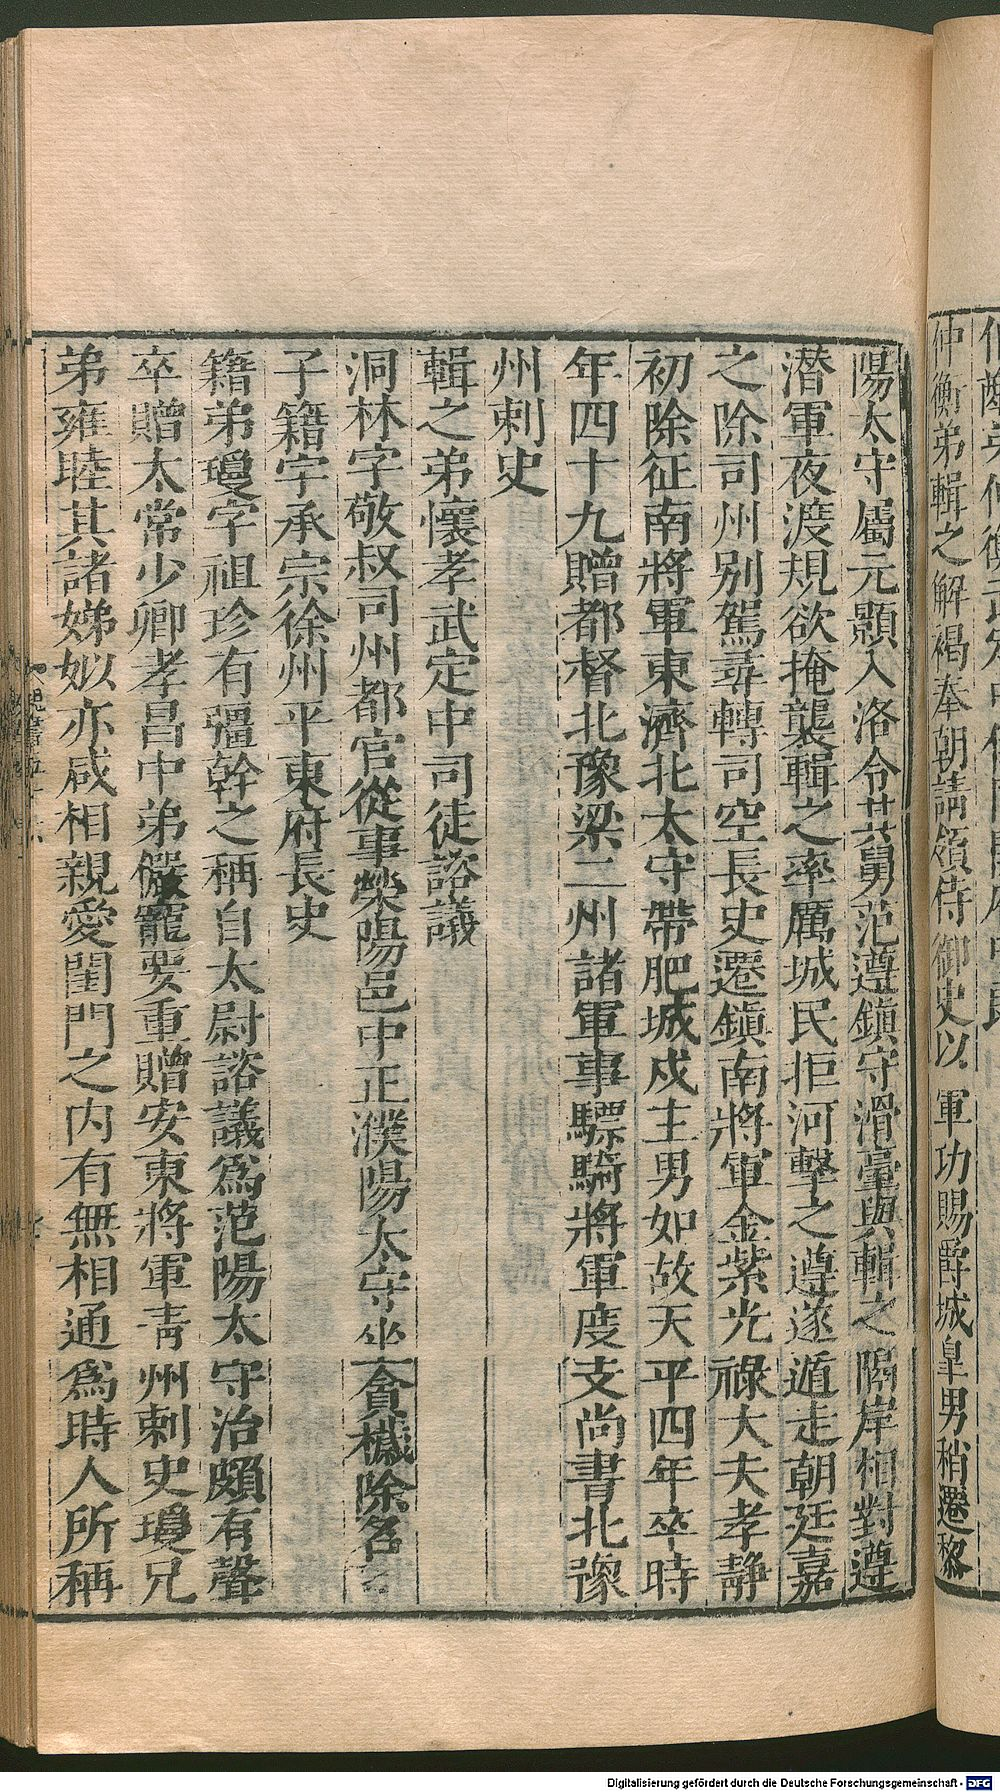 仲衡弟輯之解褐奉朝請領侍御史以軍功賜爵城皐男稍遷黎
陽太守屬元顥入洛令其舅范遵鎮守滑臺與輯之隔岸相對遵
潜軍夜渡規欲掩襲輯之率厲城民拒河擊之遵遂遁走朝廷嘉
之除司州別駕尋轉司空長史遷鎮南將軍金紫光祿大夫孝静
初除征南將軍東濟北太守帶肥城戍主男如故天平四年卒時
年四十九贈都督北豫梁二州諸軍事驃騎將軍度支尚書北豫
州刺史
輯之弟懷孝武定中司徒諮議
洞林字敬叔司州都官從事滎陽邑中正濮陽太守坐貪穢除名
子籍字承宗徐州平東府長史
籍弟瓊字祖珍有彊幹之稱自太尉諮議爲范陽太守治頗有聲
卒贈太常少卿孝昌中弟儼寵要重贈安東將軍青州刺史瓊兄
弟雍睦其諸娣姒亦咸相親愛閨門之内有無相通爲時人所稱
Digitalisierung gefördert durch die Deutsche Forschungsgemeinschaft - DFG